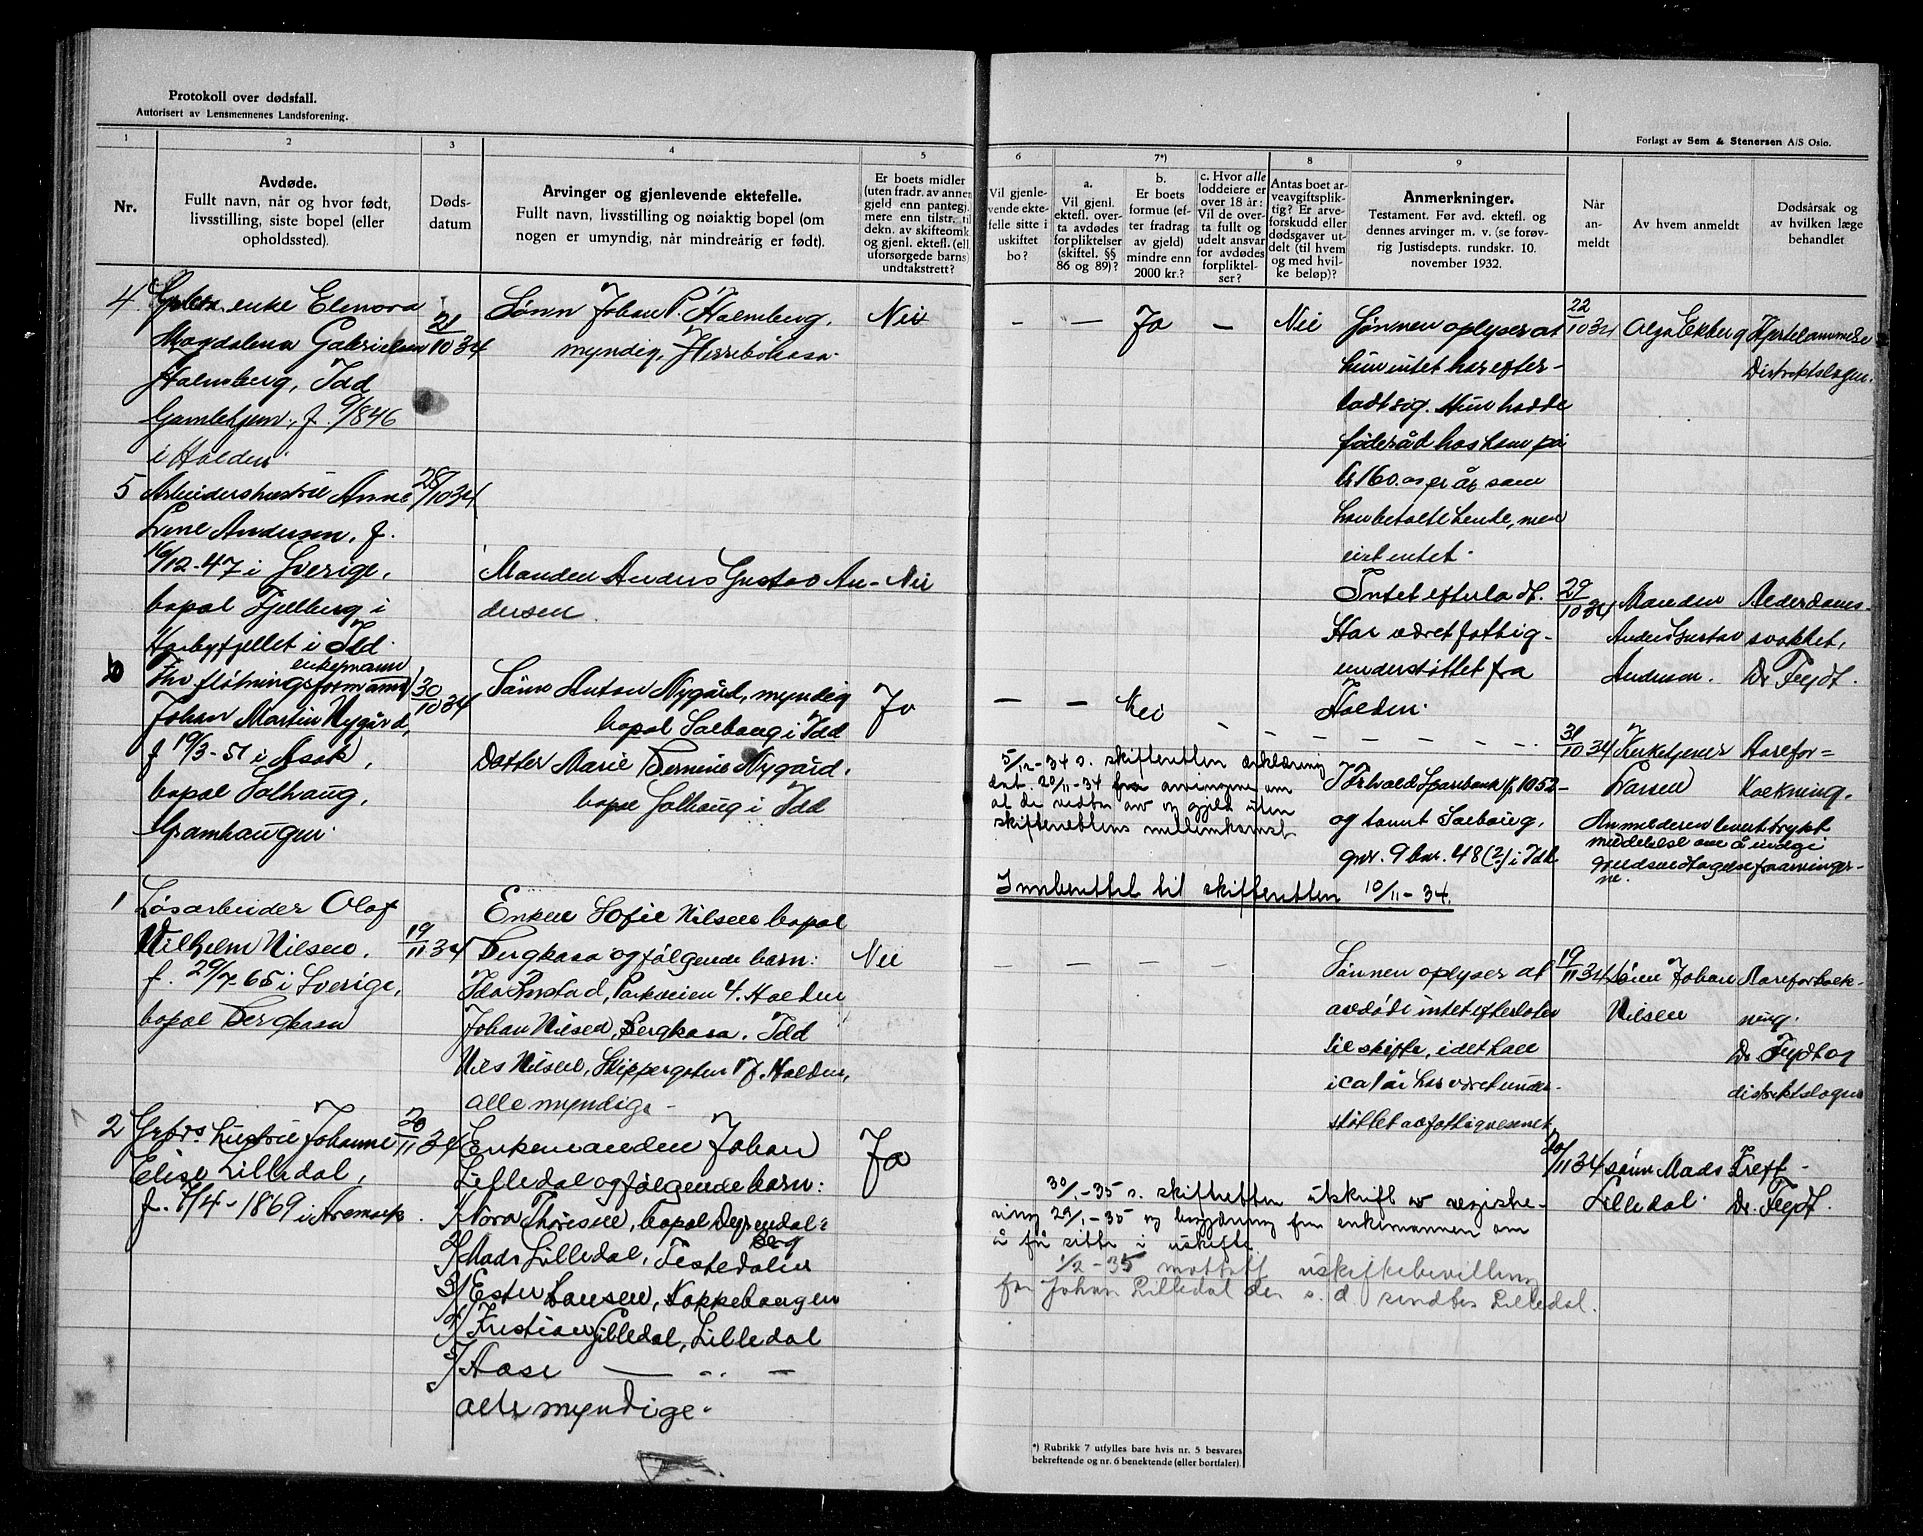 Protokoll over dødsfall.
Autorisert av Lensmennenes Landsforening.
Forlagt av Sem & Stenersen A/S Oslo.
1 2 3 4 5 6 7*) 8 9
Nr.
Avdøde.
Fullt navn, når og hvor født,
livsstilling, siste bopel (eller
opholdssted).
Døds-
datum
Arvinger og gjenlevende ektefelle.
Fullt navn, livsstilling og nøiaktig bopel (om
nogen er umyndig, når mindreårig er født).
Er boets midler
(uten fradr. av annen
gjeld enn pantegj.)
mere enn tilstr. til
dekn. av skifteomk.
og gjenl. ektef. (ell.
uforsørgede barns)
undtakstrett?
Vil gjenle-
vende ekte-
felle sitte i
uskiftet
bo?
a.
Vil gjenl.
ektef. over-
ta avdødes
forpliktelser
(skiftel. §§
86 og 89)?
b.
Er boets
formue (ef-
ter fradrag
av gjeld)
mindre enn
2000 kr.?
c. Hvor alle
loddeiere er
over 18 år:
Vil de over-
ta fullt og
udelt ansvar
for avdødes
forpliktel-
ser?
Antas boet ar-
veavgiftsplik-
tig? Er arve-
forskudd eller
dødsgaver ut-
delt (til hvem
og med hvil-
ke beløp)?
Anmerkninger.
Testament. Før avd. ektef. og
dennes arvinger m. v. (se forøv-
rig Justisdepts. rundskr. 10.
november 1932.
Når
an-
meldt
Av hvem anmeldt
Dødsårsak og
av hvilken læge
behandlet
4 enke Elenora
Magdalena Gabrielsen
Holmberg, Idd
Gamlehjem, f. 9/846
i Halden
21/10 34
Sønn Johan P. Holmberg,
myndig,
Nei
— — Ja — Nei
Sønnen oplyser at
hun intet har efter-
ladt sig. Hun hadde
føderåd hos ham på
kr 160.00 pr år som
han betalte hende, men
eiet intet.
22/10 34
Olga Ekberg
Hjertelammelse
Distriktslægen.
5 Arbeidershustru Anne
Lene Andersen, f.
16/12-47 i Sverige,
bopal Fjellberg i
i Idd.
28/10 34
Manden Anders Gustav An-
dersen.
Nei
Intet efterladt.
Har været fattig-
understøttet fra
Halden.
29/10 34
Manden
Anders Gustav
Andersen.
Alderdoms-
svakhet,
Dr Feydt.
6 Fhv fløtningsformann enkemann
Johan Martin Nygård,
f 19/3-51 i Asak,
bopal Solhaug,
30/10 34
Sønn Anton Nygård, myndig
bopal Solhaug i Idd
Datter Marie Bernine Nygård.
bopal Solhaug i Idd
Ja
— — Nei - - - - - -
5/12-34 s. skifteretten erklæring
dat. 20/11-34 fra arvingene om
at de vedtar arv og gjeld uten
skifterettens mellemkomst
Sparebank kr 1052-
og tomt Solhaug,
gnr. 9 bnr. 48 (2) i Idd.
31/10 34
Kirketjener
Larsen
Aarefor=
kalkning.
Anmelderen levert trykt
meddelelse om å innlegge
gjeldsvedtagelse fra arvinger-
ne.
Innberettet til skifteretten 10/11-34.
1 Løsarbeider Olaf
Vilhelm Nilsen,
f. 29/7-65 i Sverige,
bopal Bergkasa
19/11 34
Enken Sofie Nilsen bopal
Bergkasa og følgende barn:
Ida Parkveien 4. Halden
Johan Nilsen, Bergkasa. Idd
Nils Nilsen, Skippergaten 17. Halden,
alle myndige -
Nei
— — — —
Sønnen oplyser at
avdøde intet efterlater
til skifte, idet han
i ca 1 år har været under-
støttet av fattigvesenet
19/11 34
Sønn Johan
Nilsen
Aareforkalk-
ning.
Dr Feydt og
distriktslægen
2 Grbrs. hustru Johanne
Elise Lilledal,
f. 7/4-1869 i Aremark.
20/11 34
Enkemanden Johan
Lilledal og følgende barn:
1/ Nora Thoresen, bopal
berg
2/ Mads Lilledal, Tistedalen
3/ Ester Hansen,
4/ Kristian Lilledal, Lilledal
5/ Aase — " —
alle myndige.
Ja
30/1-35 s. skifteretten utskrift av registre-
ring 29/1-35 og begjæring fra enkemannen om
å få sitte i uskifte.
1/2-35 mottatt uskiftebevilling
for Johan Lilledal den s. d. sendtes Lilledal.
20/11 34
sønn Mads
Lilledal.
Kreft -
Dr. Feydt.
*) Rubrikk 7 utfylles bare hvis nr. 5 besvares
bekreftende og nr. 6 benektende (eller bortfaler).